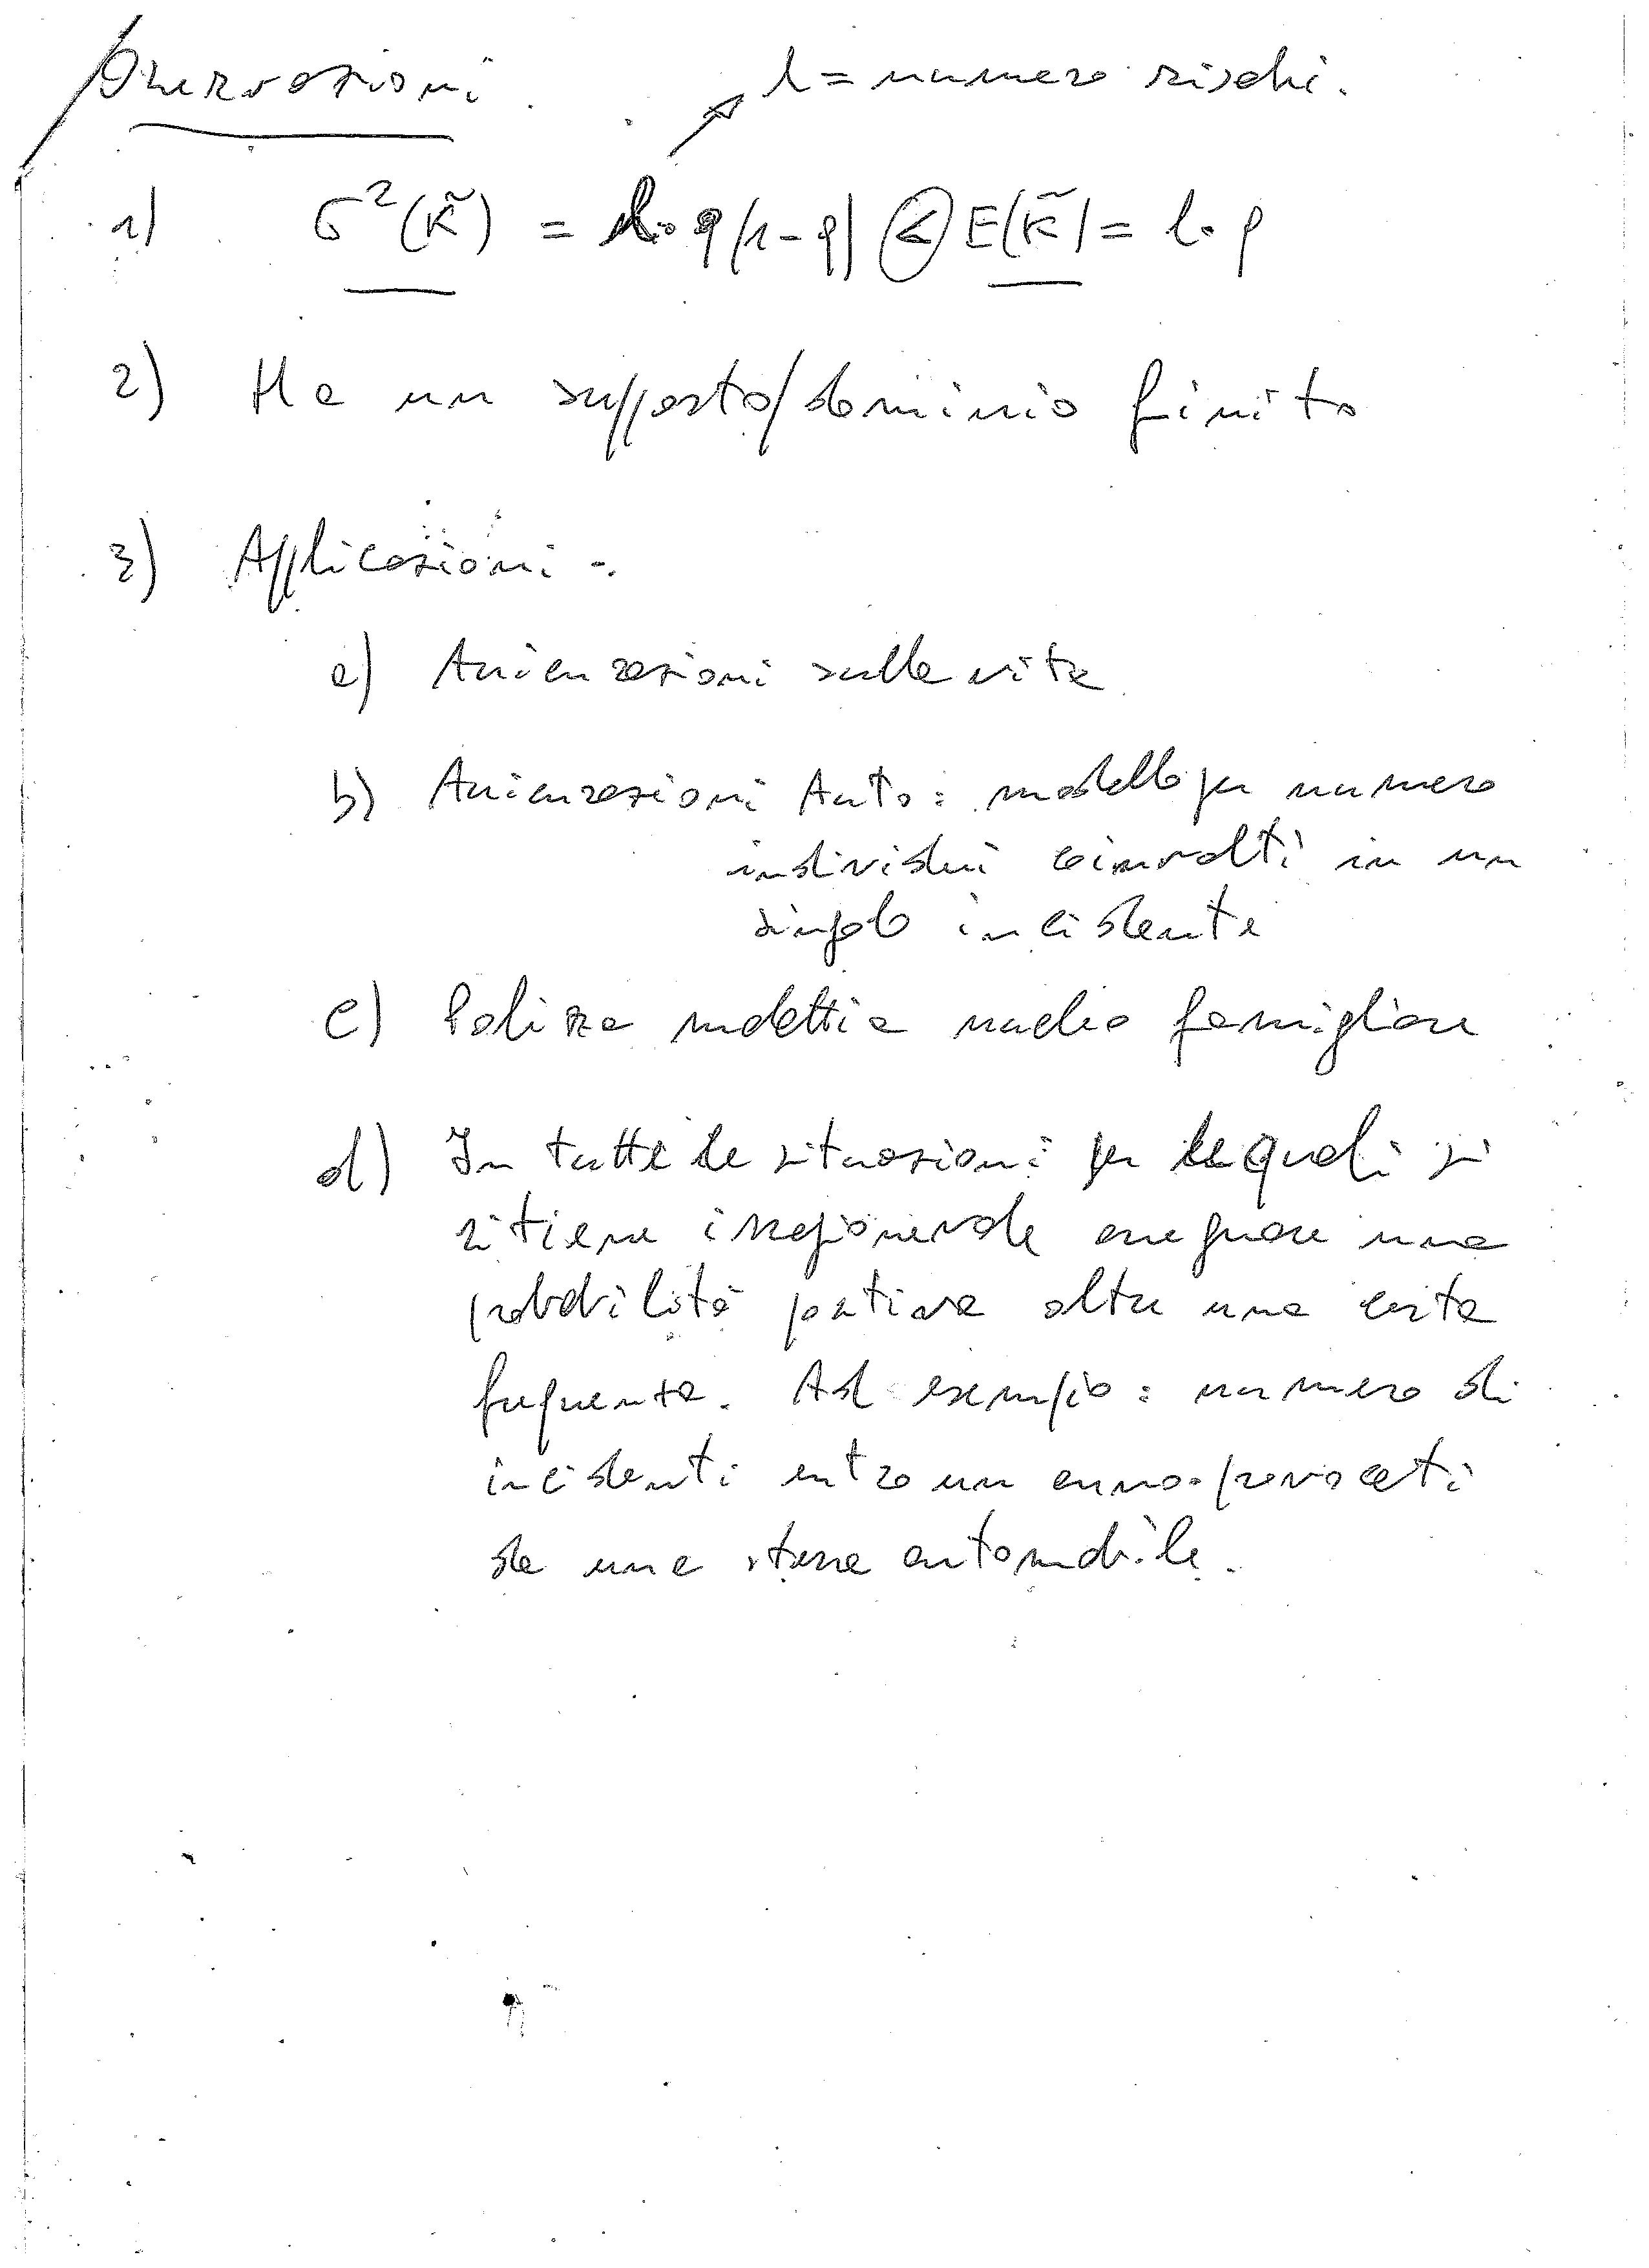 Osservazioni
l = numero rischi.
1) σ²(K̃) = l·q(1-q) < E(K̃) = l·q
2) Ha un supporto/dominio finito
3) Applicazioni -.
a) Assicurazioni sulla vita
b) Assicurazioni Auto: modello per numero
individui coinvolti in un
singolo incidente
c) Polizza malattia nucleo famigliare
d) In tutte le situazioni per le quali si
ritiene irragionevole assegnare una
probabilità positiva oltre una certa
frequenza. Ad esempio: numero di
incidenti entro un anno provocati
da una stessa automobile.